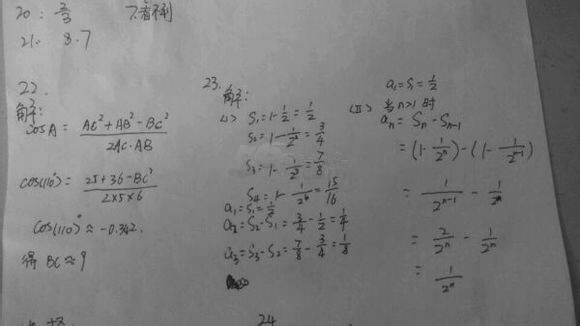 20: 2/3 7.看不到
21. 8.7
22.
解:
cosA = (AC²+AB²-BC²)/(2AC·AB)
cos(110°) = (25+36-BC²)/(2×5×6)
cos(110°)≈-0.342.
得 BC≈9
23.
解:
(1) S₁=1-1/2=1/2
S₂=1-1/2²=3/4
S₃=1-1/2³=7/8
S₄=1-1/2⁴=15/16
a₁=S₁=1/2
a₂=S₂-S₁=3/4-1/2=1/4
a₃=S₃-S₂=7/8-3/4=1/8
a₁=S₁=1/2
(Ⅱ) 当n>1时
aₙ=Sₙ-Sₙ₋₁
=(1-1/2ⁿ)-(1-1/2ⁿ⁻¹)
=1/2ⁿ⁻¹-1/2ⁿ
=2/2ⁿ-1/2ⁿ
=1/2ⁿ
24